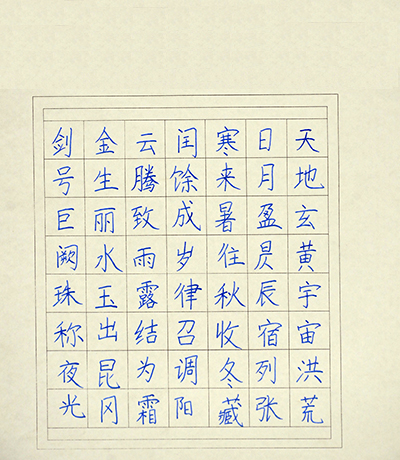 天地玄黄宇宙洪荒
日月盈昃辰宿列张
寒来暑往秋收冬藏
闰馀成岁律召调阳
云腾致雨露结为霜
金生丽水玉出昆冈
剑号巨阙珠称夜光